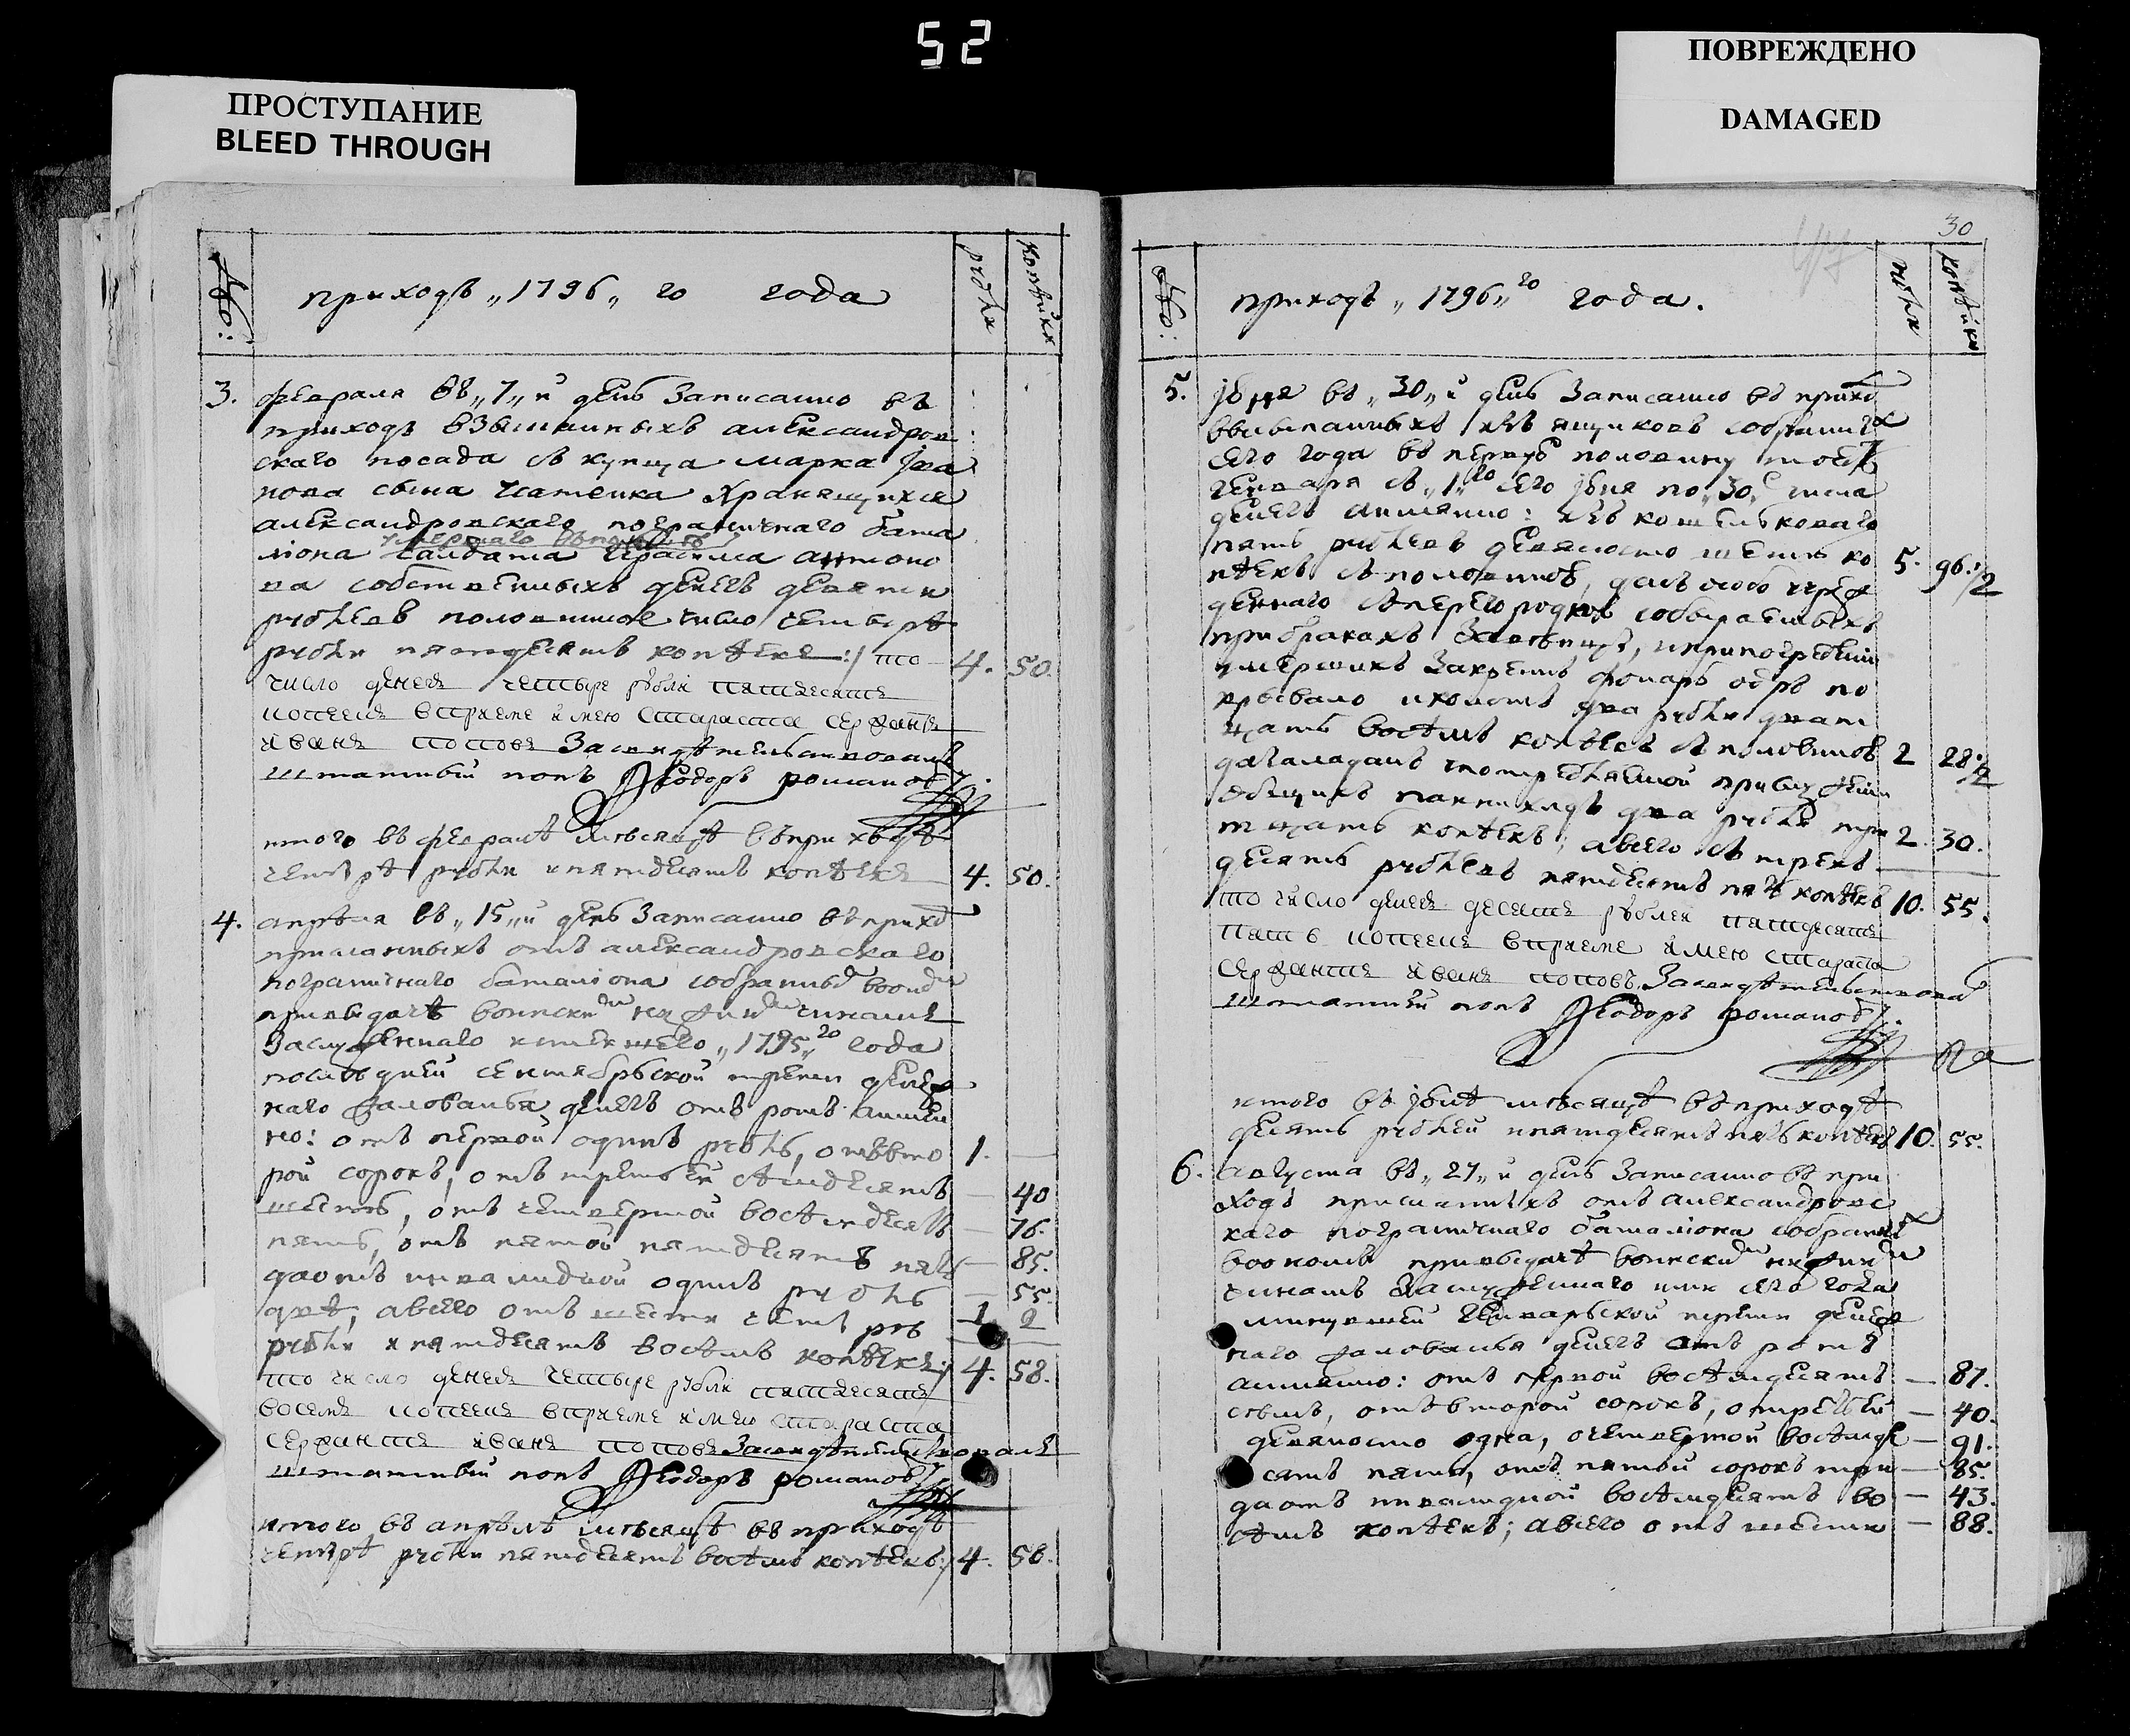 52
ПРОСТУПАНИЕ
BLEED THROUGH
ПОВРЕЖДЕНО
DAMAGED
№:
приходъ „1796„ го года
рубли
копѣйки
3. февраля въ „7„ й день Записанно въ
приходъ взысканныхъ александров
скаго посада съ купца марка Ива
нова сына хранящихся
александровскаго пограничнаго бата
умершаго
лiона салдата Герасима антоно
ва собственныхъ денегъ девяти
рублевъ половинное число четыре
рубли пятдесятъ копѣекъ :/ то 4. 50.
число денегъ четыре рубли пятдесятъ
копеекъ вприеме имею Староста Сержантъ
иванъ поповъ Засвидѣтельствовалъ
штатный попъ Ѳеодоръ романовъ
итого въ февралѣ мѣсяцѣ въ приходѣ
четырѣ рубли и пятдесятъ копѣекъ 4. 50.
4. апрѣля въ „15„ й день Записанно въ прихо
присланныхъ отъ александровскаго
пограничнаго баталiона собранныхъ
при выдачѣ воински нижни чинамъ
Заслуженнаго истекшего „1795„ го года
послѣдней сентябрьской трети денеж
наго жалованья денегъ отъ ротъ аимен
но: отъ первой одинъ рубль, отъ вто 1. —
рой сорокъ, отъ третьей семдесятъ — 40
шесть, отъ четвертой восемдесятъ — 76.
пять, отъ пятой пятдесятъ пять — 85.
даотъ инвалидной одинъ рубль — 55.
двѣ, авсего отъ шести четыре 1 2
рубли и пятдесятъ восемь копѣекъ :/ 4. 58.
то число денегъ четыре рубли пятдесятъ
восемъ копеекъ вприеме имею Староста
Сержантъ иванъ поповъ Засвидѣтельствовалъ
штатный попъ Ѳеодоръ романовъ
итого въ апрѣлѣ мѣсяцѣ въ приходѣ
четырѣ рубли пятдесятъ восемь копѣекъ :/ 4. 58.
30
№:
приходъ „1796„ го года.
рубли
копѣйки
5. Iюня въ „30„ й день Записанно въ прихо
высыпанныхъ изъ ящиковъ собранныхъ
сего года въ первую половину тоесть
генваря съ „1„ го сего Iюня по „30„ е числа
денегъ аимянно: изъ кошельковаго
пять рублевъ девяносто шесть ко 5. 96. 1/2
пѣекъ съ половиною,
денного собираемыхъ
при бракахъ
умершихъ
два рубли дват
цать восемъ копѣекъ съ половиною 2 28. 1/2
два рубли три
тцать копѣекъ; авсего съ трехъ 2. 30.
десять рублевъ пятдесятъ пять копѣекъ 10. 55.
то число денегъ десять рублей пятдесятъ
пять копеекъ вприеме имею Староста
Сержантъ иванъ поповъ. Засвидѣтельствовалъ
штатный попъ Ѳеодоръ романовъ
итого въ Iюнѣ мѣсяцѣ въ приходѣ
десять рублей ипятдесятъ пять копѣекъ 10. 55.
6. Августа въ „27„ й день Записанно въ при
ходъ присланныхъ отъ александровс
каго пограничнаго баталiона собранныхъ
при выдачѣ воински нижни
чинамъ Заслуженнаго сего года
минувшей Генварьской трети денеж
наго жалованья денегъ отъ ротъ
аимянно: отъ первой восемдесятъ — 87.
семь, отъ второй сорокъ, отретьей — 40.
девяносто одна, очетвертой восемде — 91.
сятъ пять, отъ пятой сорокъ три — 85.
даотъ инвалидной восемдесятъ во — 43.
семъ копѣекъ; авсего отъ шести — 88.